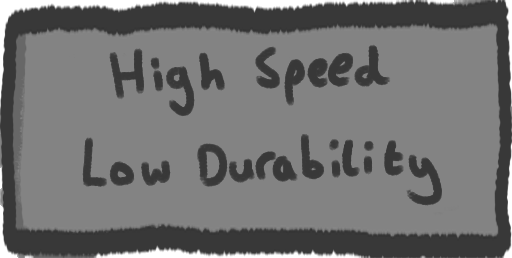 High Speed
Low Durability